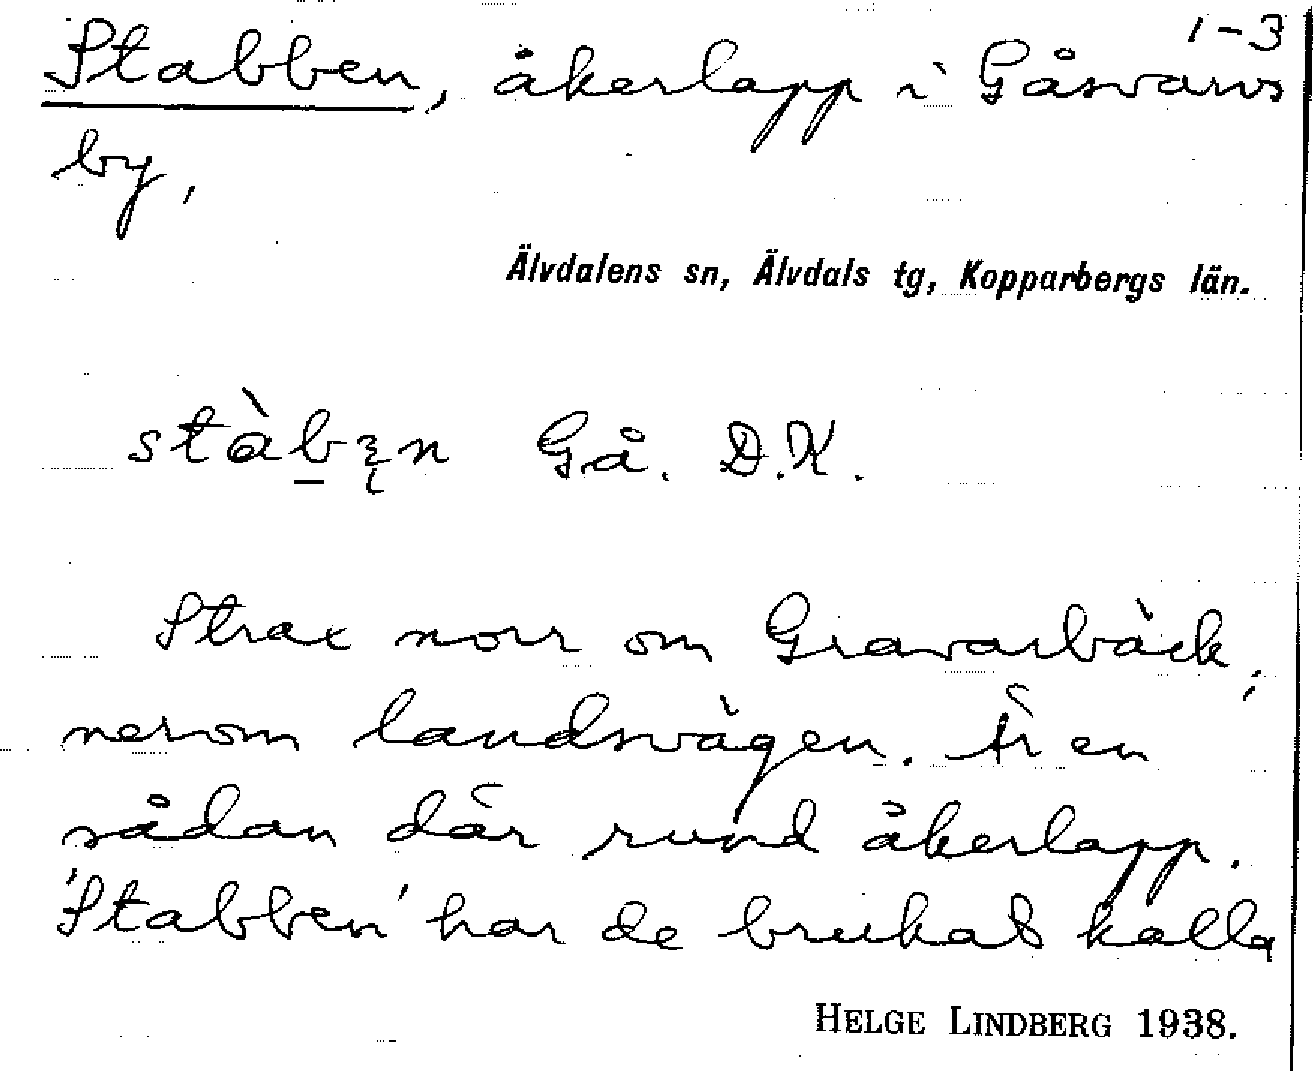 1-3
Stabben, åkerlapp i Gåsvarvs
by,
Älvdalens sn, Älvdals tg, Kopparbergs län.
Gå. D.K.
Strax norr om Gravarbäck,
nerom landsvägen. Är en
sådan där rund åkerlapp.
'Stabben' har de brukat kalla
HELGE LINDBERG 1938.